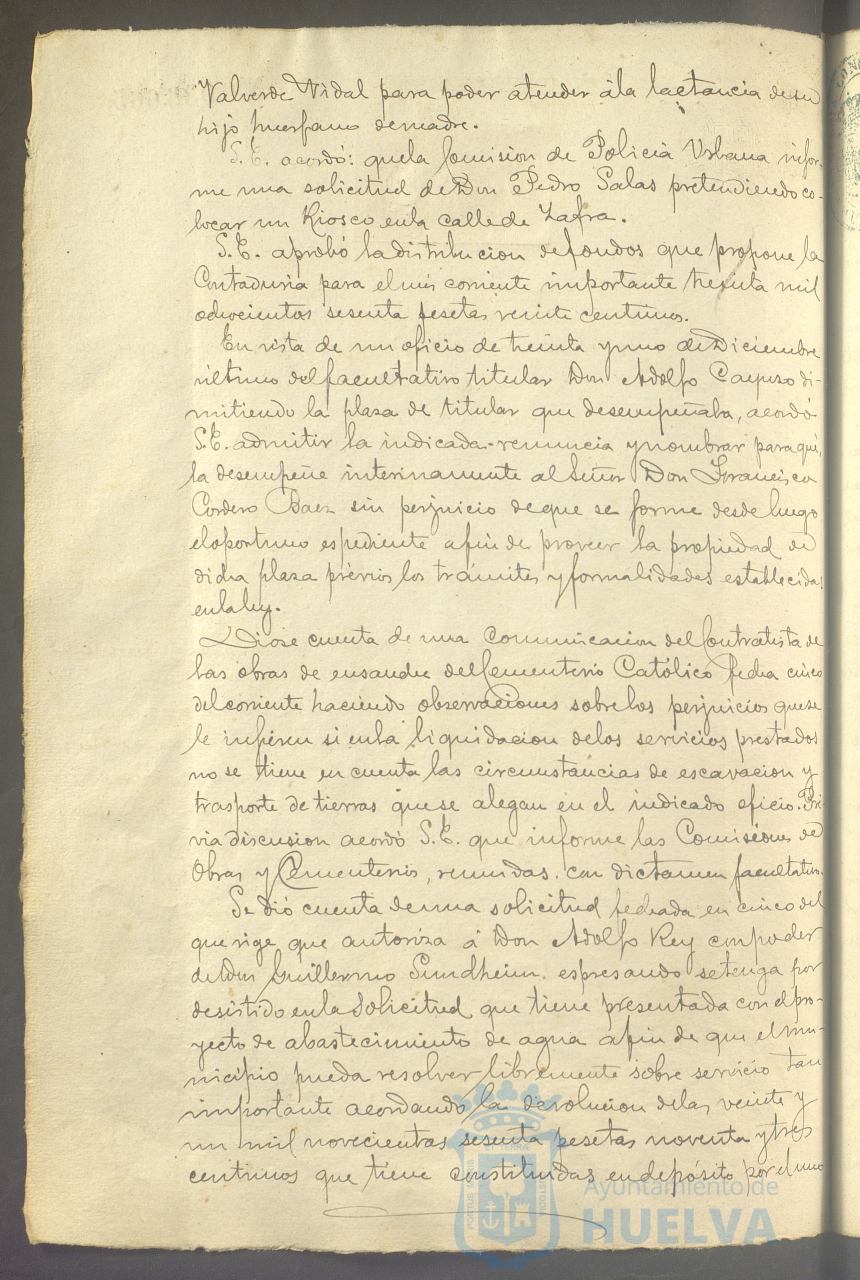 Valverde Vidal para poder atender á la lactancia de su
hijo huerfano de madre.
S.E. acordó: que la Comision de Policia Urbana infor-
me una solicitud de Don Pedro Salas pretendiendo co-
locar un Kiosco en la calle de Zafra.
S.E. aprobó la distribucion de fondos que propone la
Contaduria para el mes corriente importante treinta mil
ochocientos sesenta pesetas veinte centimos.
En vista de un oficio de treinta y uno de Diciembre
último del facultativo titular Don Adolfo Cayuso di-
mitiendo la plaza de titular que desempeñaba, acordó
S.E. admitir la indicada renuncia y nombrar para qué
la desempeñe interinamente al Señor Don Francisco
Cordero Baez sin perjuicio de que se forme desde luego
el oportuno espediente a fin de proveer la propiedad de
dicha plaza prévios los trámites y formalidades establecidas
en la ley.
Diose cuenta de una comunicacion del Contratista de
las obras de ensanche del Cementerio Católico fecha cinco
del corriente haciendo observaciones sobre los perjuicios que se
le infieren si en la liquidacion de los servicios prestados
no se tiene en cuenta las circunstancias de escavacion y
trasporte de tierras que se alegan en el indicado oficio. Pré
via discusion acordó S.E. que informe las Comisiones de
Obras y Cementerios, reunidas, con dictamen facultativo.
Se dió cuenta de una solicitud fechada en cinco del
que rige, que autoriza á Don Adolfo Rey con poder
de Don Guillermo Sundheim, espresando se tenga por
desistido en la solicitud que tiene presentada con el pro-
yecto de abastecimiento de agua a fin de que el mu-
nicipio pueda resolver libremente sobre servicio tan
importante acordando la devolucion de las veinte y
un mil novecientas sesenta pesetas noventa y tres
centimos que tiene constituidas en depósito por el uno
Ayuntamiento de
HUELVA